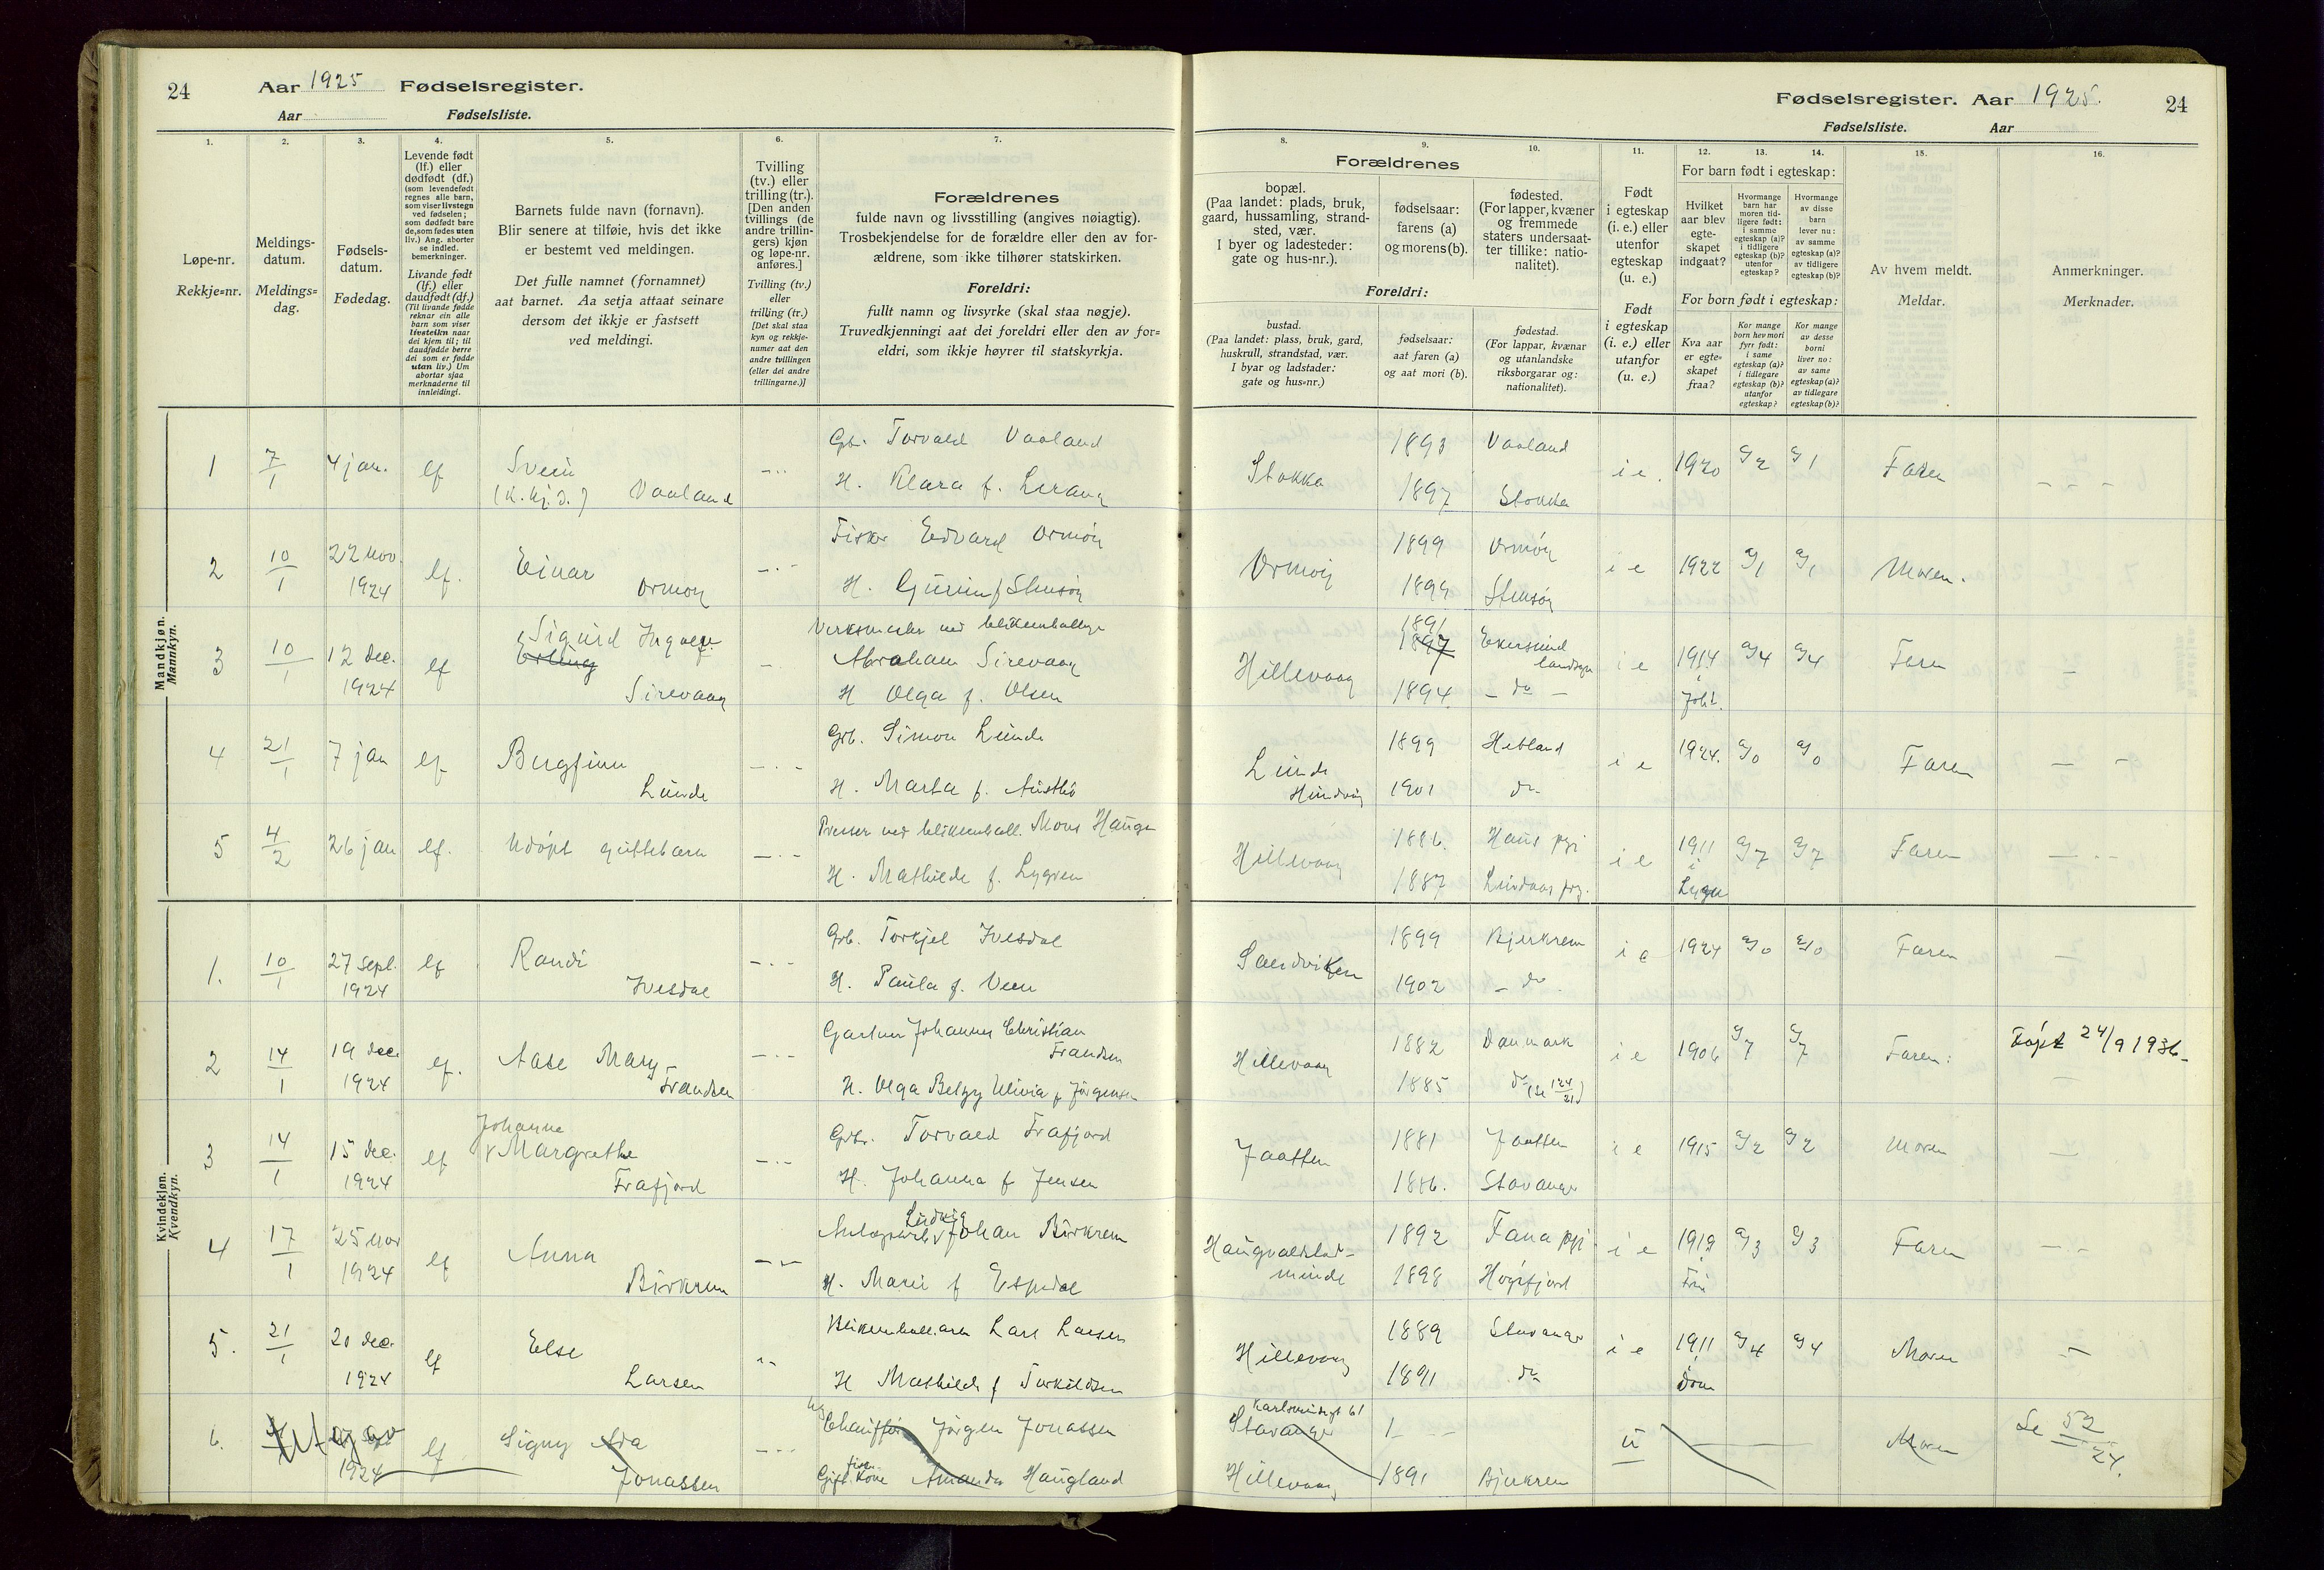 24 Aar 1925 Fødselsregister.
Aar Fødselsliste.
Fødselsregister. Aar 1925. 24
Fødselsliste. Aar
1. 2. 3. 4. 5. 6. 7. 8. 9. 10. 11. 12. 13. 14. 15. 16.
Løpe-nr.
Rekkje=nr.
Meldings-
datum.
Meldings=
dag.
Fødsels-
datum.
Fødedag.
Levende født
(lf.) eller
dødfødt (df.)
(som levendefødt
regnes alle barn,
som viser livstegn
ved fødselen;
som dødfødt bare
de, som fødes uten
liv.) Ang. aborter
se indled.
bemerkninger.
Livande født
(lf.) eller
daudfødt (df.)
(Til livande fødde
reknar ein alle
barn som viser
livsteikn naar
dei kjem til; til
daudfødde berre
dei som er fødde
utan liv.) Um
abortar sjaa
merknaderne til
innleidingi.
Barnets fulde navn (fornavn).
Blir senere at tilføie, hvis det ikke
er bestemt ved meldingen.
Det fulle namnet (fornamnet)
aat barnet. Aa setja attaat seinare
dersom det ikkje er fastsett
ved meldingi.
Tvilling
(tv.) eller
trilling (tr.).
[Den anden
tvillings (de
andre trillin-
gers) kjøn
og løpe-nr.
anføres.]
Tvilling (tv.)
eller
trilling (tr.)
[Det skal staa
kyn og rekkje-
numer aat den
andre tvillingen
(eller dei andre
trillingarne.)]
Forældrenes
fulde navn og livsstilling (angives nøiagtig).
Trosbekjendelse for de forældre eller den av for-
ældrene, som ikke tilhører statskirken.
Foreldri:
fullt namn og livsyrke (skal staa nøgje).
Truvedkjenningi aat dei foreldri eller den av for=
eldri, som ikkje høyrer til statskyrkja.
Forældrenes
bopæl.
(Paa landet: plads, bruk,
gaard, hussamling, strand-
sted, vær.
I byer og ladesteder:
gate og hus-nr.).
fødselsaar:
farens (a)
og morens (b).
fødested.
(For lapper, kvæner
og fremmede
staters undersaat-
ter tillike: natio-
nalitet).
Foreldri:
bustad.
(Paa landet: plass, bruk, gard,
huskrull, strandstad, vær.
I byar og ladstader:
gate og hus=nr.)
fødselsaar:
aat faren (a)
og aat mori (b).
fødestad.
(For lappar, kvænar
og utanlandske
riksborgarar og:
nationalitet).
Født
i egteskap
(i. e.) eller
utenfor
egteskap
(u. e.)
Født
i egteskap
(i. e.) eller
utanfor
(u. e.)
For barn født i egteskap:
Hvilket
aar blev
egte-
skapet
indgaat?
Hvormange
barn har
moren tid-
ligere født:
i samme
egteskap (a)?
i tidligere
egteskap (b)?
utenfor
egteskap?
Hvormange
av disse
barn
lever nu:
av samme
egteskap (a)?
av tidligere
egteskap (b)?
For born født i egteskap:
Kva aar
er egte=
skapet
fraa?
Kor mange
born hev mori
fyrr født:
i same
egteskap (a)?
i tidlegare
egteskap (b)?
utanfor
egteskap?
Kor mange
av desse
borni
liver no:
av same
egteskap (a)?
av tidlegare
egteskap (b)?
Av hvem meldt.
Meldar.
Anmerkninger.
Merknader.
Mandkjøn.
Mannkyn.
1 7/1 4 jan. lf Svein Gb. Torvald Vaaland 1893 Vaaland
(k. kj. d.) Vaaland H. Klara f. Lerang Stokka 1897 Stokka i e. 1920 a/2 a/1 Faren
2 10/1 22 nov. 1924 lf. Einar Ormøy Fisker Edvard Ormøy 1899 Ormøy
Ormøy i e 1922 a/1 a/1 Moren.
3 10/1 12 dec. 1924 lf Sigurd Ingolf Erling Sirevaag
Abraham Sirevaag 1891 1897 Ekersund landsogn
H Olga f. Olsen Hillevaag 1894 do i e 1914 a/4 a/4 Faren
4 21/1 7 jan lf Bergfinn Lunde Grb. Simon Lunde 1899 Hetland
H. Marta f. Austbö Lunde Hundvåg 1901 do i e 1924. a/0 a/0 Faren
5 4/2 26 jan lf. Udöpt guttebarn Mons Haugen 1886. Haus pgj
H. Mathilde f. Lygren Hillevaag 1887 Lindaas prg. i e 1911 a/7 a/7 Faren
Kvindekjøn.
Kvendkyn.
1. 10/1 27 sept. 1924 lf Randi Ivesdal Grb. Torkjel Ivesdal 1899 Bjerkrem
H. Paula f. Veen Sandviken 1902 do i e 1924 a/0 a/0 Faren
2 14/1 19 dec. 1924 lf. Aase Mary Frandsen Gartner Johannes Christian Frandsen 1882 Danmark
H. Olga Betzy Ulivia f Jörgensen Hillevaag 1885 do (se 124/21) i e 1906 a/7 a/7 Faren. Föpt 24/9 1936
3 14/1 15 dec. 1924 lf Johanne Margrethe Frafjord Grbr. Torvald Frafjord 1881 Jaatten
H. Johanna f Jensen Jaatten 1886. Stavanger i e 1915 a/2 a/2 Moren
4 17/1 25 nov 1924 lf Anna Birkrem Ludvig Johan Birkrem 1892 Fana pgj
H. Marie f Espedal Haugvaldstad-minde 1898 Högsfjord i e 1919 a/3 a/3 Faren
5. 21/1 20 dec. 1924 lf Else Larsen Lars Larsen 1889 Stavanger
H Mathilde f Torkildsen Hillevaag 1891 do i e 1911 a/4 a/4 Moren
6. Utgaar 1924 lf Signy Ada Jonassen Chauffør Jörgen Jonassen Karlsminnegt 61 Stavanger
Gift Kone Amanda Haugland Hillevaag 1891 Bjerkrem u Moren Se 52/24.